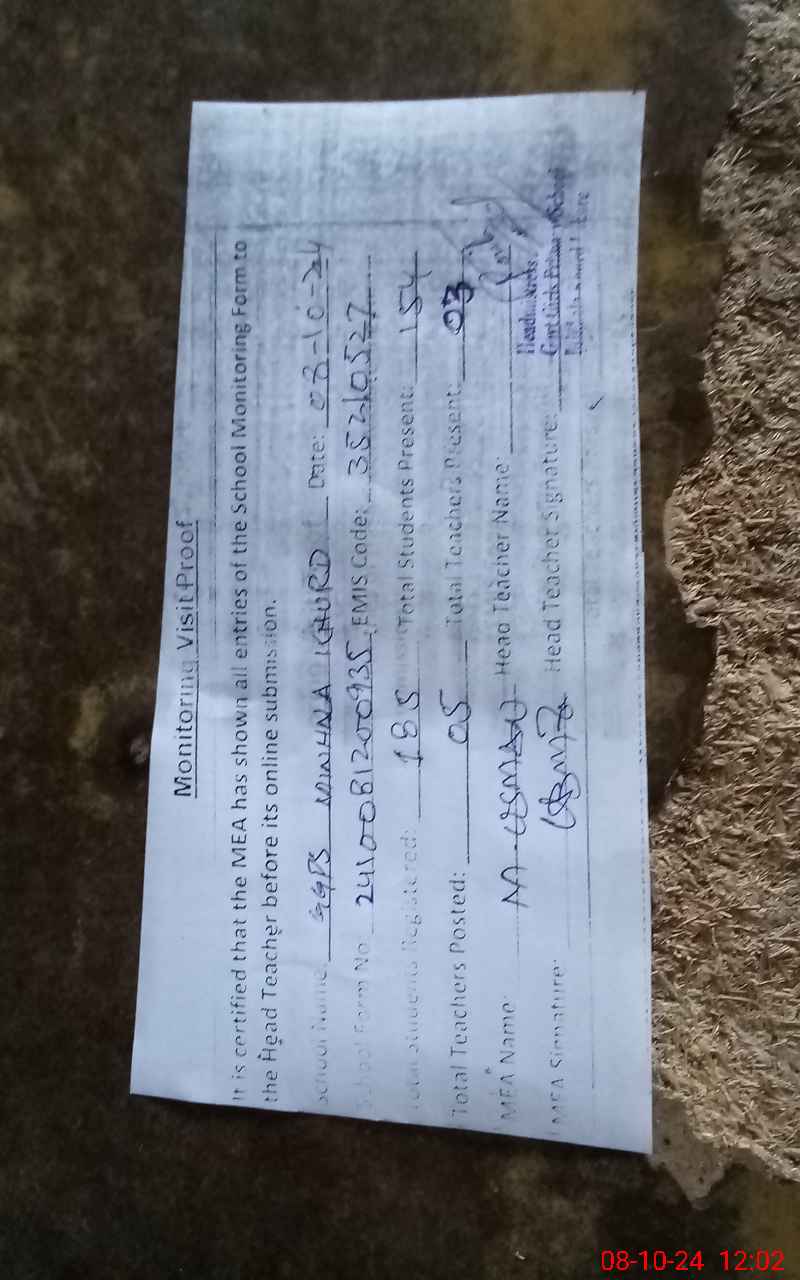 Monitoring Visit Proof
It is certified that the MEA has shown all entries of the School Monitoring Form to
the Head Teacher before its online submission.
School Name: GGPS MINHNA KHURD Date: 08-10-24
School Form No: 2410081200935 EMIS Code: 35210527
Total Students Registered: 185 Total Students Present: 154
Total Teachers Posted: 05 Total Teachers Present: 03
MEA Name: M-USMAN Head Teacher Name:
MEA Signature: Head Teacher Signature:
Headmistress
Govt Girls Primary School
08-10-24 12:02